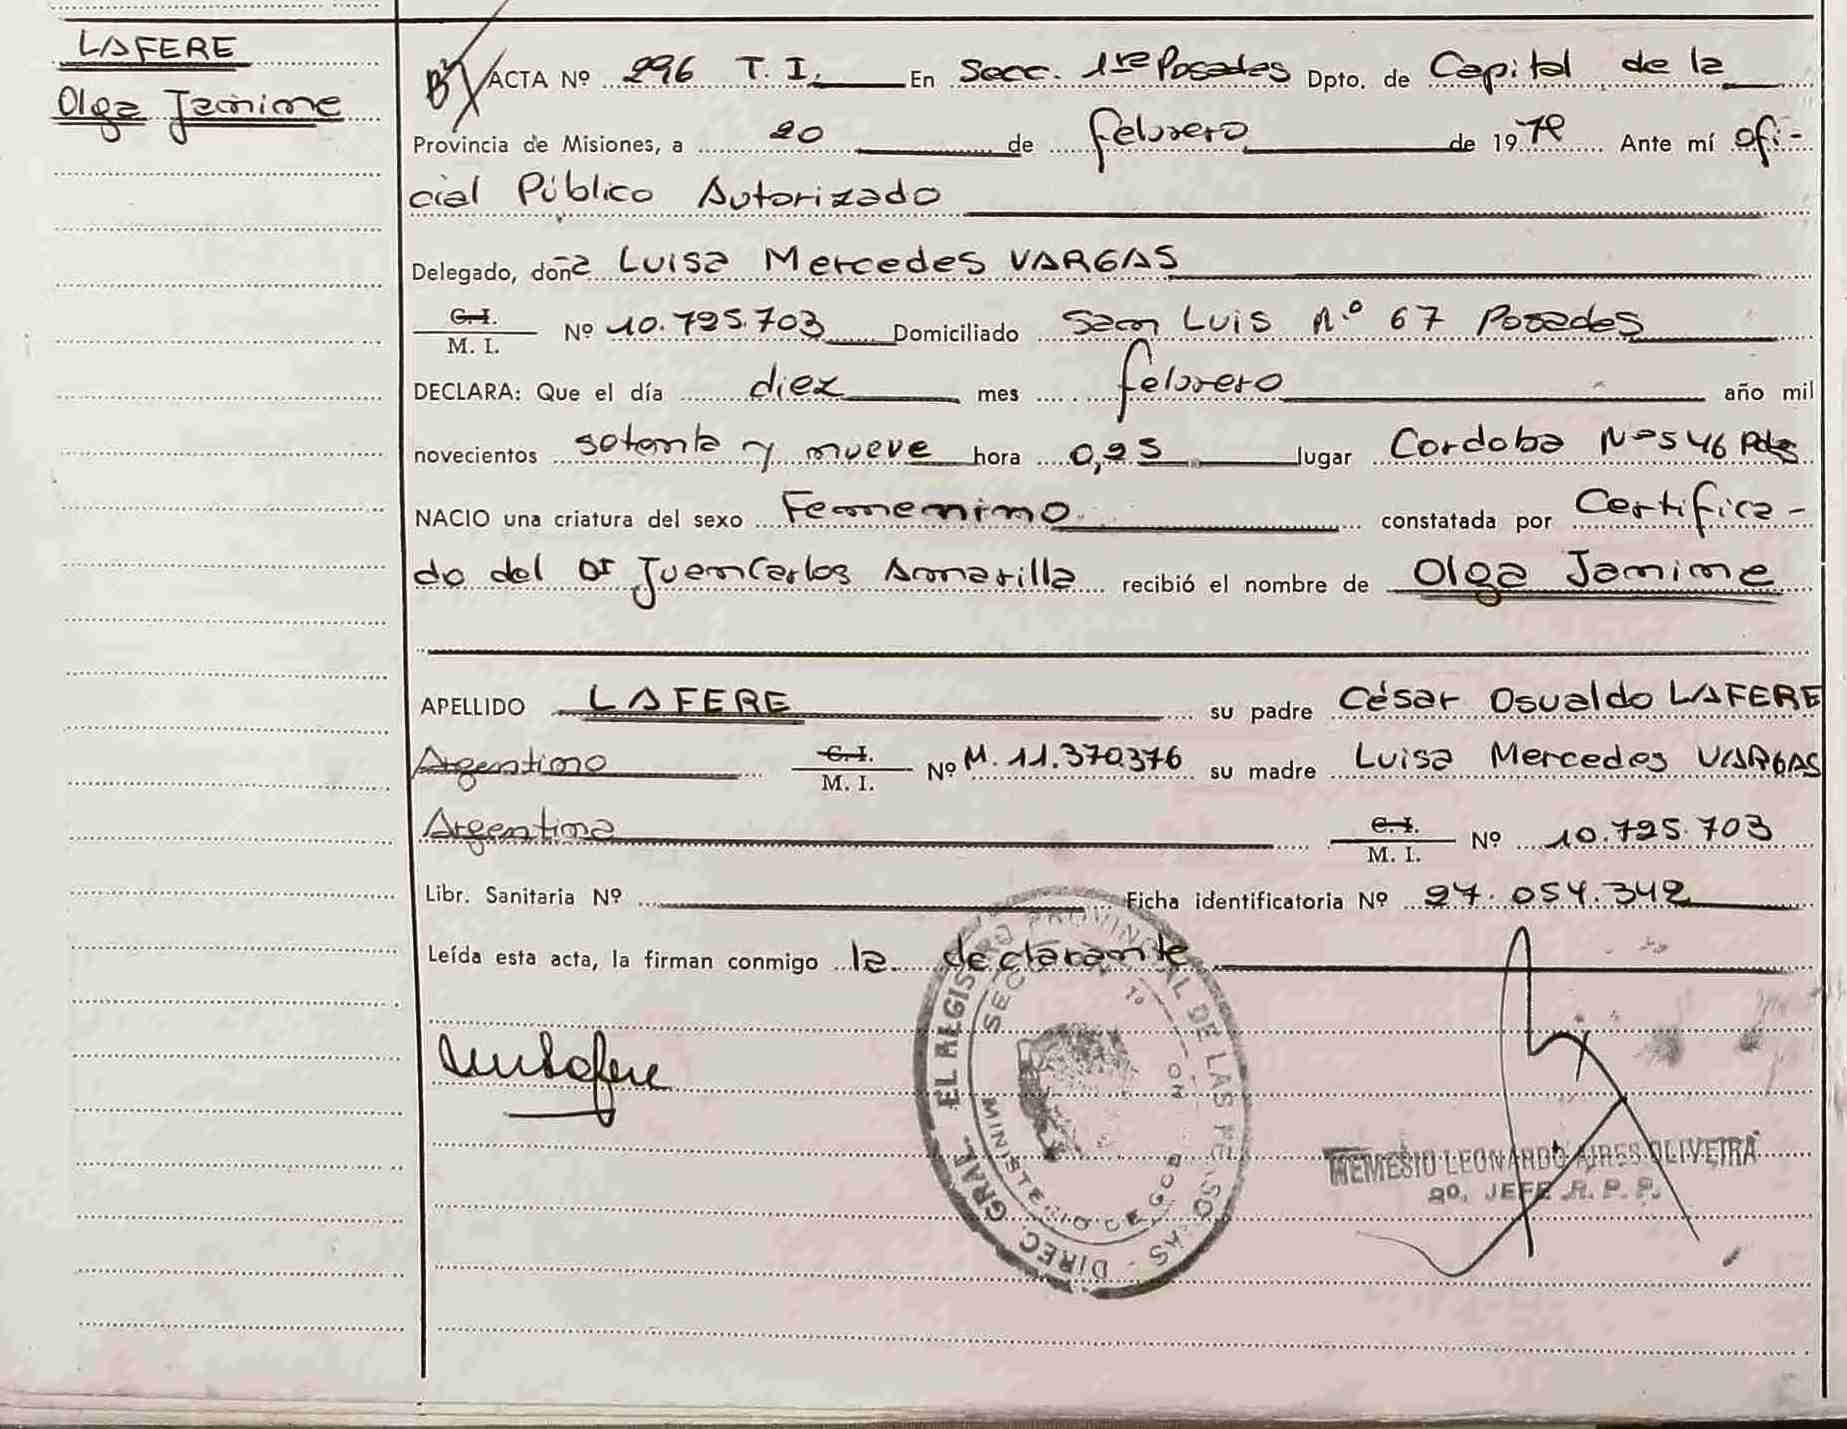 LAFERE
Olga Janine
ACTA Nº 296 T. I. En Secc. 1ra Posadas Dpto. de Capital de la
Provincia de Misiones, a 20 de febrero de 1979 Ante mí ofi-
cial Público Autorizado
Delegado, doña Luisa Mercedes VARGAS
C. I.
M. I. Nº 10.725.703 Domiciliado San Luis N.º 67 Posadas
DECLARA: Que el día diez mes febrero año mil
novecientos setenta y nueve hora 0,25 lugar Cordoba Nº 546 Pdas
NACIO una criatura del sexo Femenino constatada por Certifica-
do del Dr Juan Carlos Amarilla recibió el nombre de Olga Janine
APELLIDO LAFERE su padre César Osvaldo LAFERE
Argentino C. I.
M. I. Nº M. 11.370376 su madre Luisa Mercedes VARGAS
Argentina C. I.
M. I. Nº 10.725.703
Libr. Sanitaria Nº Ficha identificatoria Nº 27.054.342
Leída esta acta, la firman conmigo la declarante
DIREC. GRAL. EL REGISTRO PROVINCIAL DE LAS
MINISTERIO DE GOB
NEMESIO LEONARDO AIRES OLIVEIRA
2º. JEFE R. P. P.